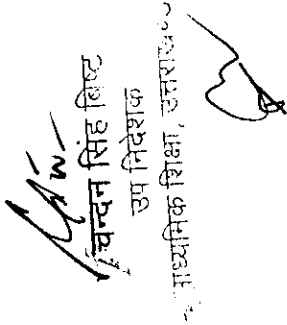 चन्दन सिंह बिष्ट
उप निदेशक
माध्यमिक शिक्षा, उत्तराखण्ड